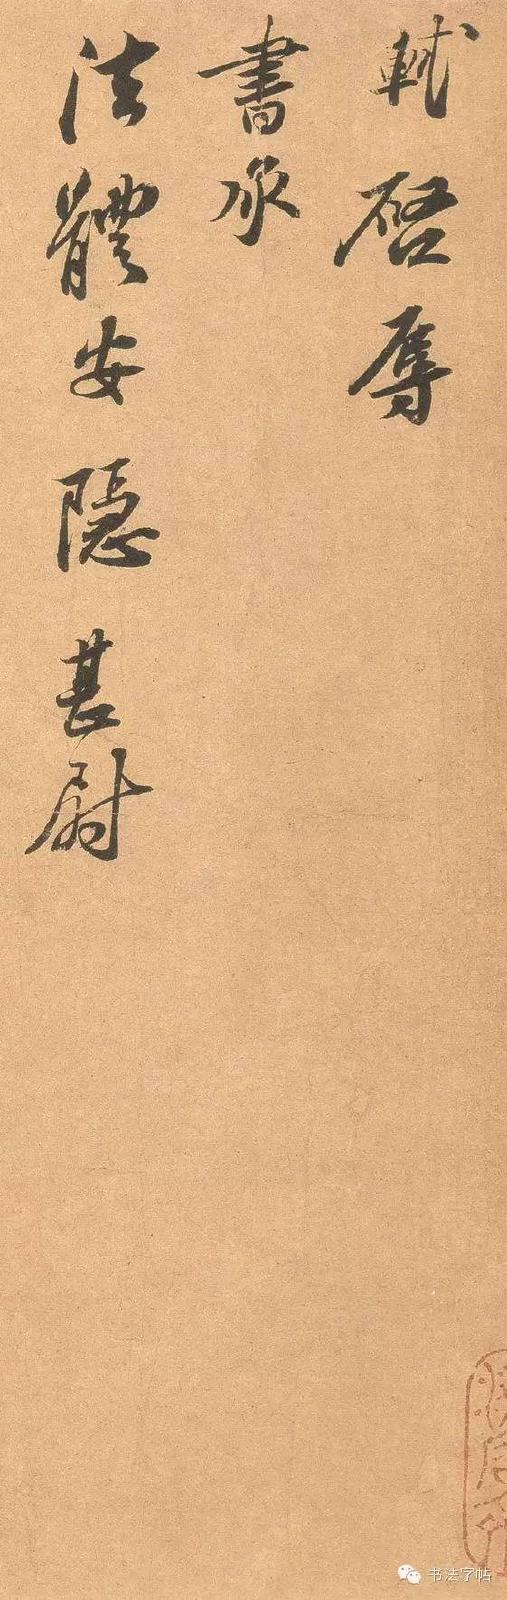 軾啓辱
書承
法體安隱甚尉
书法字帖